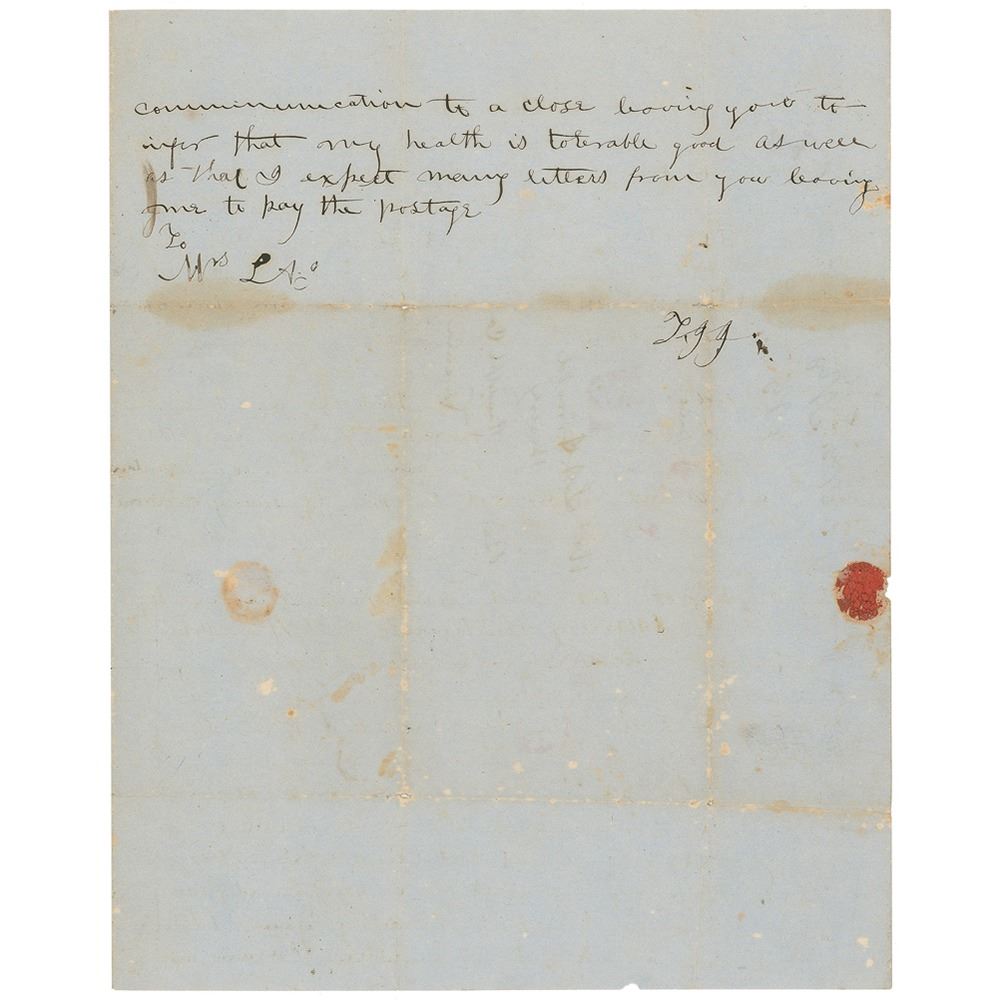 comminunication to a close leaving you to
infer that my health is tolerable good as well
as that I expect many letters from you leaving
me to pay the postage
To
Mrs L A